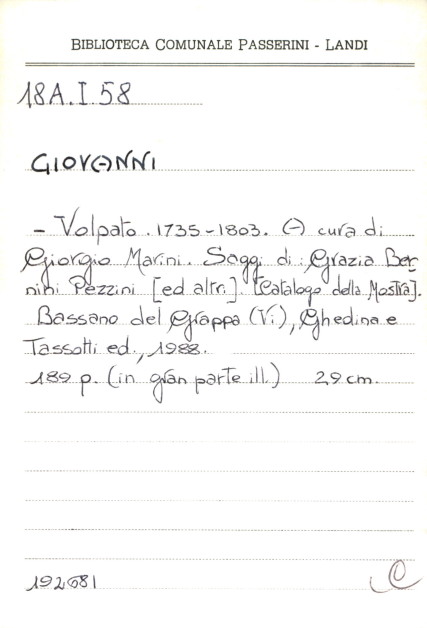 BIBLIOTECA COMUNALE PASSERINI - LANDI
18A.I.58
GIOVANNI
- Volpato. 1735-1803. A cura di
Giorgio Marini. Saggi di Grazia Ber-
nini Pezzini [ed altri]. [Catalogo della Mostra].
Bassano del Grappa (Vi), Ghedina e
Tassotti ed., 1988.
189 p. (in gran parte ill.) 29 cm.
192681
C